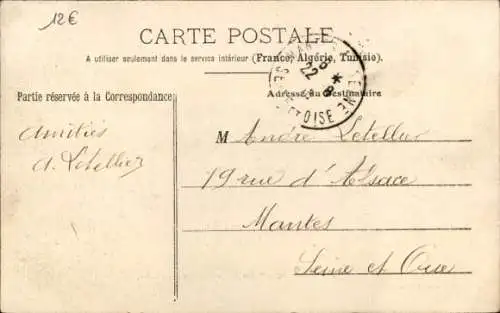 12€
CARTE POSTALE
A utiliser seulement dans le service intérieur (France, Algérie, Tunisie).
Partie réservée à la Correspondance
Adresse du Destinataire
22
8
ET OISE
Amitiés
A. Letellier
M André Letellier
19 rue d'Alsace
Mantes
Seine et Oise